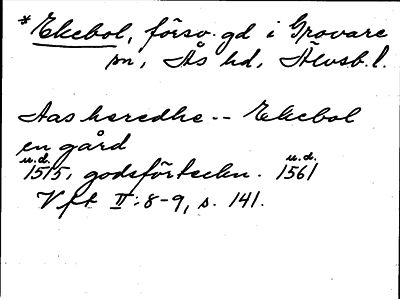 *Ekebol, försv. gd i Grovare
sn, Ås hd, Älvsb. l.
Aas heredhe -- Ekebol
en gård
u.d. u.d.
1515, godsförteckn. 1561
Vft II:8-9, s. 141.